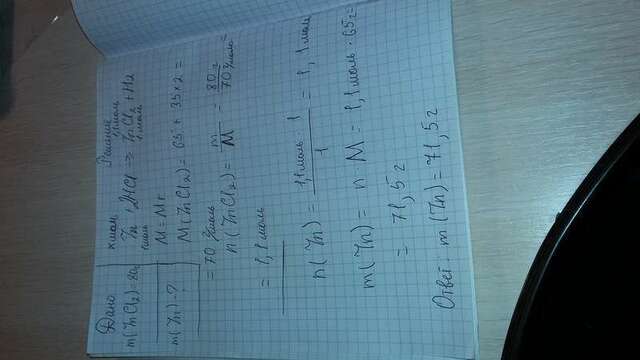 Дано
Решение
m(ZnCl2)=80г
x моль
1,1 моль
Zn + 2HCl => ZnCl2 + H2
1 моль
1 моль
m(Zn)-?
M = Mr
M(ZnCl2) = 65 + 35×2 =
= 70 г/моль
n(ZnCl2) = m/M = 80г/70 г/моль =
= 1,1 моль
n(Zn) = 1,1 моль · 1/1 = 1,1 моль
m(Zn) = n · M = 1,1 моль · 65г =
= 71,5 г
Ответ: m(Zn) = 71,5 г